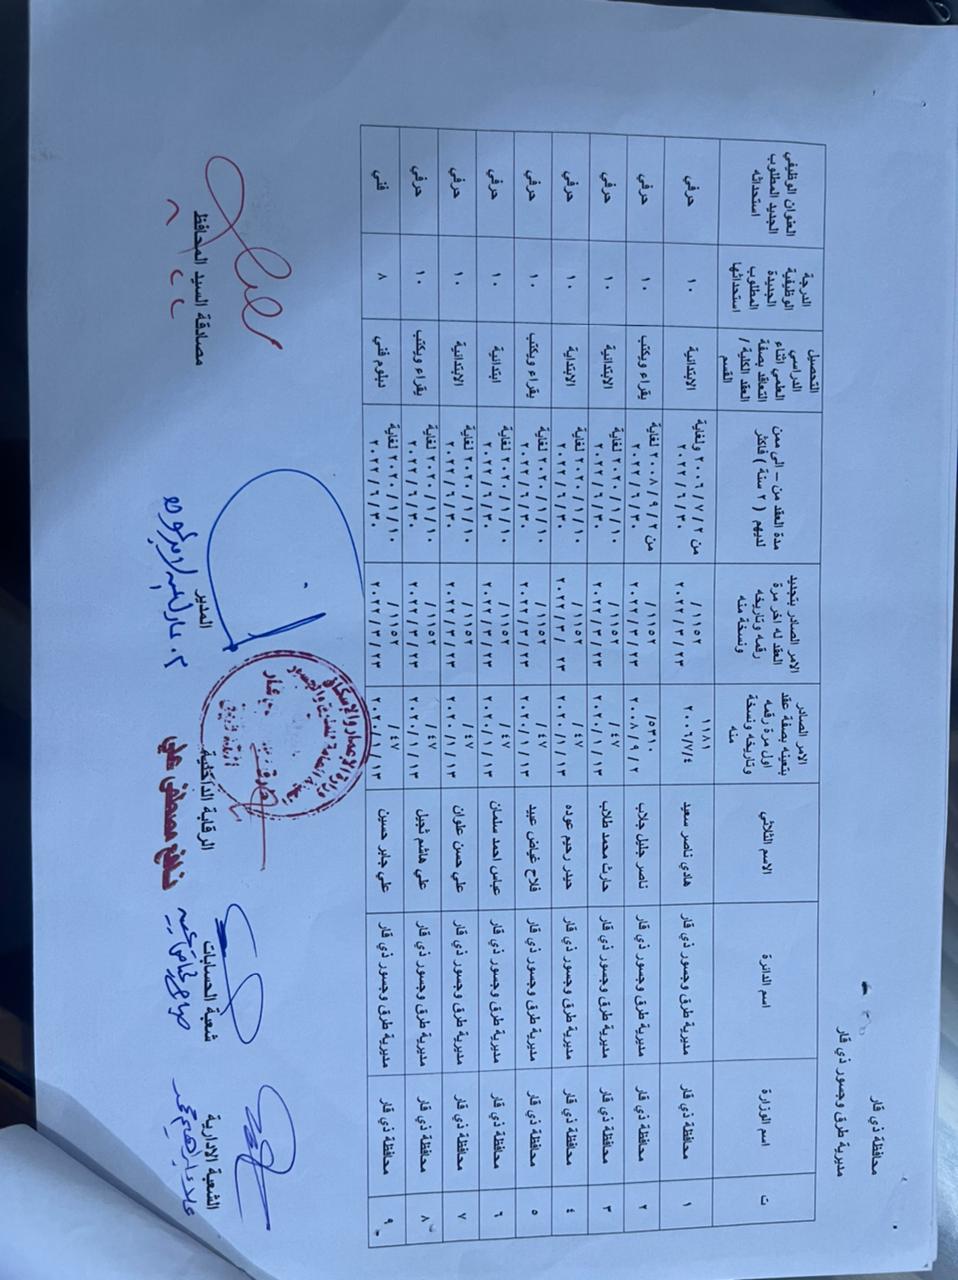 محافظة ذي قار
مديرية طرق وجسور ذي قار
ت | اسم الوزارة | اسم الدائرة | الاسم الثلاثي | الامر الصادر بتعينه بصفة عقد اول مرة رقمه وتاريخه ونسخة منه | الامر الصادر بتجديد العقد له اخر مرة رقمه وتاريخه ونسخة منه | مدة العقد من – الى ممن لديهم ( ٢ سنة ) فاكثر | التحصيل الدراسي العلمي اثناء التعاقد بصفة العقد الكلية / القسم | الدرجة الوظيفية الجديدة المطلوب استحداثها | العنوان الوظيفي الجديد المطلوب استحداثه
١ | محافظة ذي قار | مديرية طرق وجسور ذي قار | هادي ناصر سعيد | ١١٨١ ٢٠٠٦/٧/٤ | ١١٥٢/ ٢٠٢٢/٣/٢٣ | من ٢٠٠٦/٧/٢ ولغاية ٢٠٢٢/٦/٣٠ | الابتدائية | ١٠ | حرفي
٢ | محافظة ذي قار | مديرية طرق وجسور ذي قار | ناصر جليل جلاب | ٥٣١٠/ ٢٠٠٨/٩/٢ | ١١٥٢/ ٢٠٢٢/٣/٢٣ | من ٢٠٠٨/٩/٢ لغاية ٢٠٢٢/٦/٣٠ | يقراء ويكتب | ١٠ | حرفي
٣ | محافظة ذي قار | مديرية طرق وجسور ذي قار | حارث محمد طلاب | ٤٧/ ٢٠٢٠/١/١٣ | ١١٥٢/ ٢٠٢٢/٣/٢٣ | ٢٠٢٠/١/١٠ لغاية ٢٠٢٢/٦/٣٠ | الابتدائية | ١٠ | حرفي
٤ | محافظة ذي قار | مديرية طرق وجسور ذي قار | حيدر رحيم عوده | ٤٧/ ٢٠٢٠/١/١٣ | ١١٥٢/ ٢٠٢٢/٣/٢٣ | ٢٠٢٠/١/١٠ لغاية ٢٠٢٢/٦/٣٠ | الابتداية | ١٠ | حرفي
٥ | محافظة ذي قار | مديرية طرق وجسور ذي قار | فلاح غياض عبيد | ٤٧/ ٢٠٢٠/١/١٣ | ١١٥٢/ ٢٠٢٢/٣/٢٣ | ٢٠٢٠/١/١٠ لغاية ٢٠٢٢/٦/٣٠ | يقراء ويكتب | ١٠ | حرفي
٦ | محافظة ذي قار | مديرية طرق وجسور ذي قار | عباس احمد سلمان | ٤٧/ ٢٠٢٠/١/١٣ | ١١٥٢/ ٢٠٢٢/٣/٢٣ | ٢٠٢٠/١/١٠ لغاية ٢٠٢٢/٦/٣٠ | ابتدائية | ١٠ | حرفي
٧ | محافظة ذي قار | مديرية طرق وجسور ذي قار | علي حسن علوان | ٤٧/ ٢٠٢٠/١/١٣ | ١١٥٢/ ٢٠٢٢/٣/٢٣ | ٢٠٢٠/١/١٠ لغاية ٢٠٢٢/٦/٣٠ | الابتدائية | ١٠ | حرفي
٨ | محافظة ذي قار | مديرية طرق وجسور ذي قار | علي هاشم ثجيل | ٤٧/ ٢٠٢٠/١/١٣ | ١١٥٢/ ٢٠٢٢/٣/٢٣ | ٢٠٢٠/١/١٠ لغاية ٢٠٢٢/٦/٣٠ | يقراء ويكتب | ١٠ | حرفي
٩ | محافظة ذي قار | مديرية طرق وجسور ذي قار | علي جابر حسين | ٤٧/ ٢٠٢٠/١/١٣ | ١١٥٢/ ٢٠٢٢/٣/٢٣ | ٢٠٢٠/١/١٠ لغاية ٢٠٢٢/٦/٣٠ | دبلوم فني | ٨ | فني
الشعبة الادارية
شعبة الحسابات
الرقابة الداخلية
المدير
مصادقة السيد المحافظ